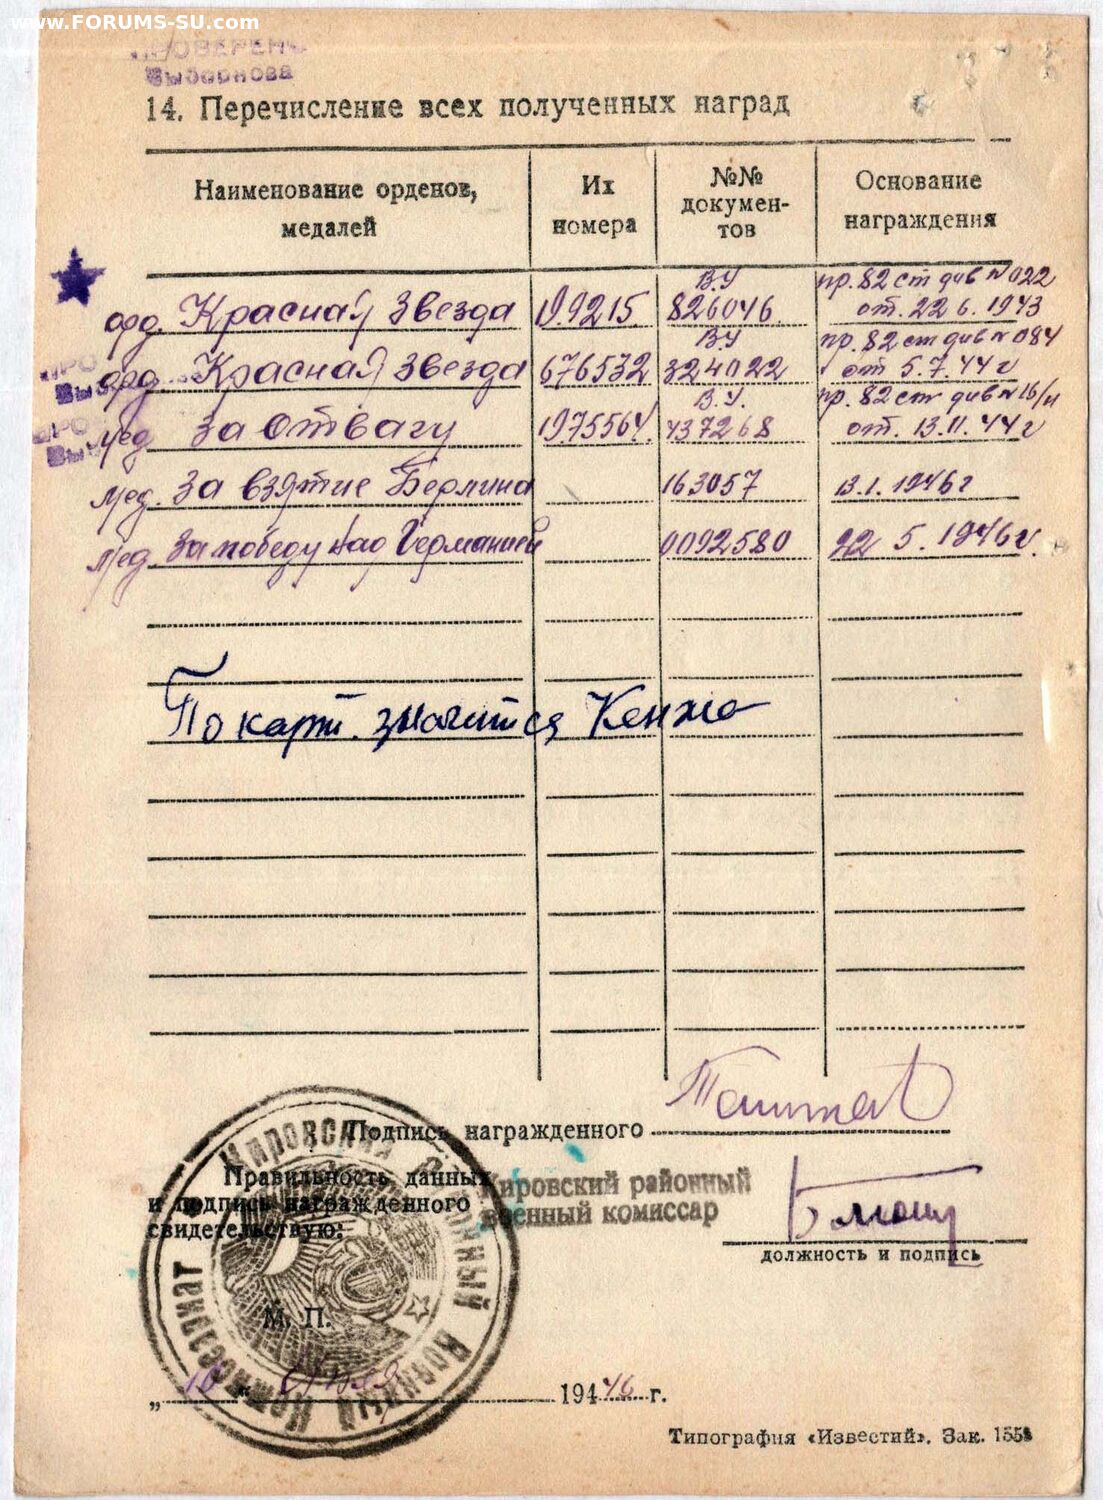 www.FORUMS-SU.com
ПРОВЕРЕНО
Выборнова
14. Перечисление всех полученных наград
Наименование орденов, медалей
Их номера
№№ документов
Основание награждения
орд. Красная Звезда 199215 В.У 826046 пр. 82 ст див №022 от. 22 6. 1943
орд. Красная Звезда 676532 В.У 324022 пр. 82 ст див №084 от 5.7.44 г
мед За отвагу 1975564 В.У. 437268 пр. 82 ст див №16/н от. 13.11.44 г
мед. За взятие Берлина 163057 13.1.1946 г
мед. За победу над Германией 0092580 22 5. 1946 г.
По карт. значится Кенже
Подпись награжденного
Правильность данных
и подпись награжденного
свидетельствую:
Кировский районный
военный комиссар
должность и подпись
Кировский районный военный комиссариат
М. П.
„10" июня 1946 г.
Типография «Известий». Зак. 155